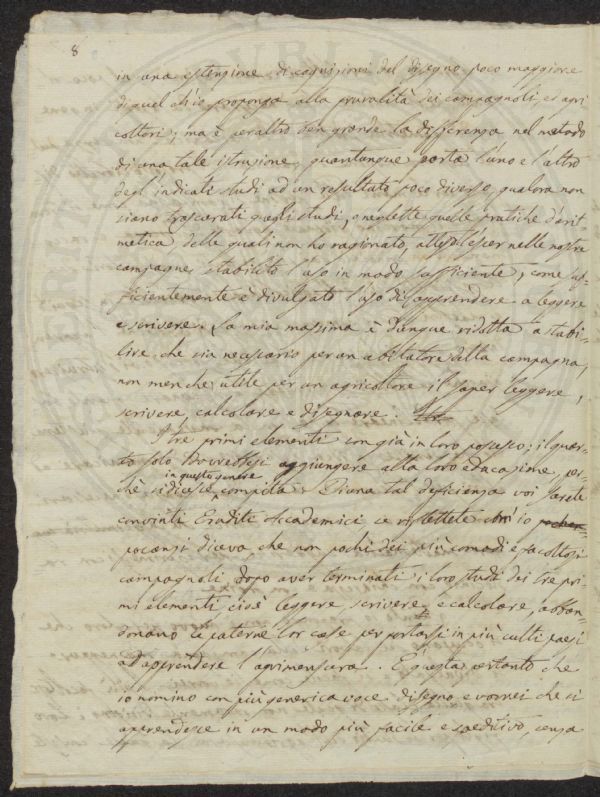 8
in una estensione di cognizioni del disegno poco maggiore
di quel ch'io propongo alla pluralità dei campagnoli, ed agri
coltori; ma è peraltro ben grande la differenza nel metodo
di una tale istruzione, quantunque porta l'uno e l'altro
degl'indicati studi ad un resultato poco diverso, qualora non
siano trascurati quegli studi, omesse quelle pratiche d'arit-
metica delle quali non ho ragionato, atteso l'esser nelle nostre
campagne stabilito l'uso in modo sufficiente, come suf-
ficientemente è divulgato l'uso di apprendere a leggere
e scrivere. La mia massima è dunque ridotta a stabi-
lire che sia necessario per un abitatore della campagna,
non men che utile per un agricoltore il saper leggere,
scrivere, calcolare e disegnare.
I tre primi elementi son già in loro possesso; il quar-
to solo dovrebbesi aggiungere alla loro educazione, per-
in questo genere
chè si dicesse compita. Di una tal deficienza voi sarete
convinti Eruditi Accademici se riflettete ch'io
pocanzi diceva, che non pochi dei più comodi e facoltosi
campagnoli dopo aver terminati i loro studi dei tre pri-
mi elementi cioè leggere, scrivere, e calcolare, abban-
donano le paterne lor case per portarsi in più culti paesi
ad apprendere l'agrimensura. È questa pertanto che
io nomino con più generica voce disegno e vorrei che si
apprendesse in un modo più facile e spedito, senza